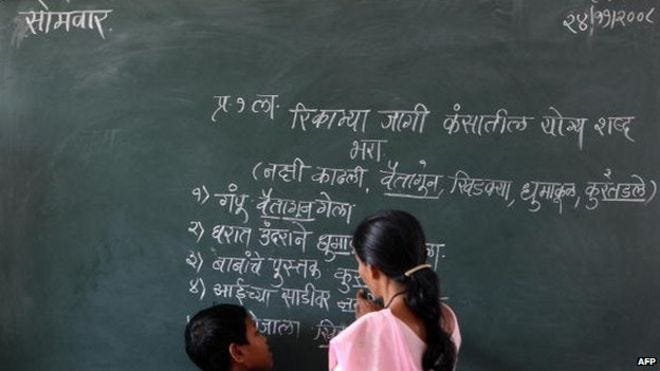 सोमवार
२४/११/२००८
प्र. १ ला. रिकाम्या जागी कंसातील योग्य शब्द
भरा
(नक्षी काढली, वैतागुन, खिडक्या, धुमाकूळ, कुरतडले)
१) गंपू वैतागून गेला
२) घरात उंदराने धुमा
३) बाबांचे पुस्तक कुर
४) आईच्या साडीवर
AFP